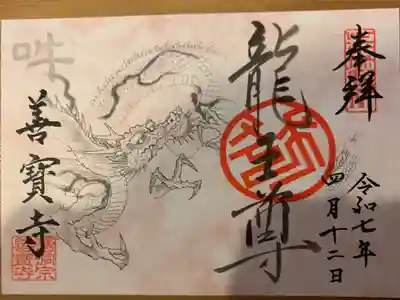 奉拝
令和七年
四月十二日
龍王尊
吽
善寳寺